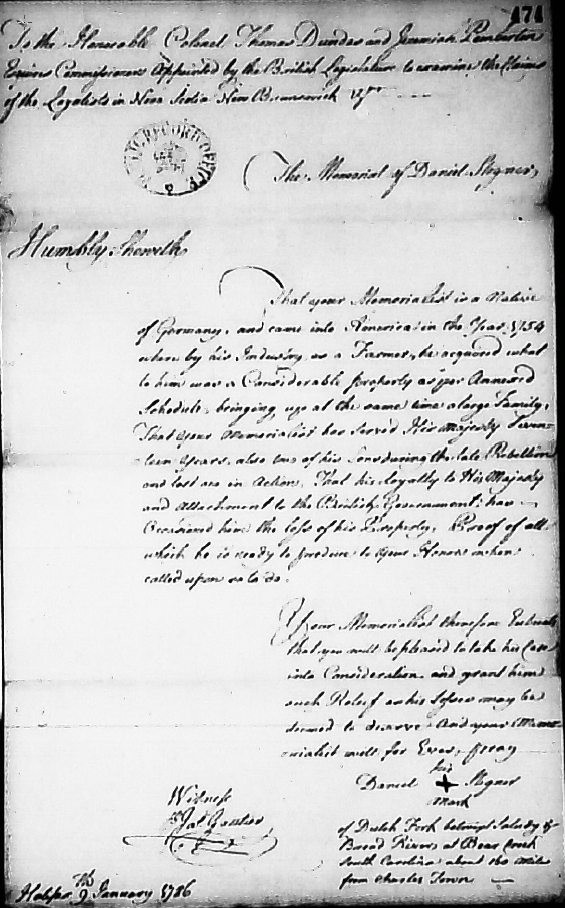 474
To the Honorable Colonel Thomas Dundas and Jeremiah Pemberton
Esquires Commissioners Appointed by the British Legislature to examine the Claims
of the Loyalists in Nova Scotia New Brunswick &ca
PUBLIC RECORD OFFICE
The Memorial of Daniel Migner
Humbly Sheweth
That your Memorialist is a Native
of Germany, and came into America in the Year 1754
where by his Industry, as a Farmer, he acquired what
to him was a Considerable property as per Annexed
Schedule, bringing up at the same time a large Family,
That your Memorialist has Served His Majesty
teen Years, also two of his Sons during the late Rebellion
and lost one in Action, That his Loyalty to His Majesty
and Attachment to the British Government has
Occasioned him the loss of his Property, Proof of all
which he is ready to produce to your Honors when
called upon so to do.
Your Memorialist therefore Entreats
that you will be pleased to take his Case
into Consideration and grant him
such Relief as his Losses may be
deemed to deserve And your Mem-
orialist will for Ever, pray
his
Daniel + Migner
mark
Witness
Gautier
of Dutch Fork betwixt Saludy &
Broad Rivers at Bear Creek
South Carolina about 100 mile
from Charles Town
Halifax 9th January 1786